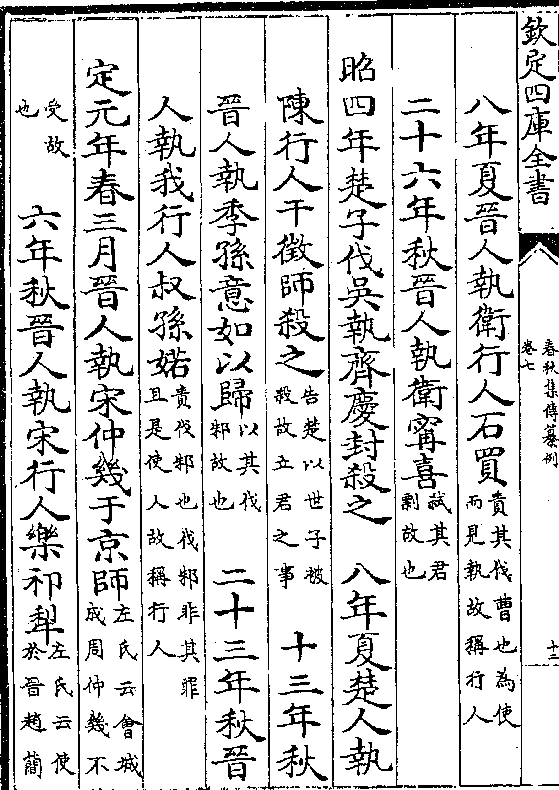 欽定四庫全書
春秋集傳纂例
卷七
十二
八年夏晉人執衛行人石買責其伐曹也為使而見執故稱行人
二十六年秋晉人執衛甯喜弒其君剽故也
昭四年楚子伐吳執齊慶封殺之　八年夏楚人執
陳行人干徵師殺之告楚以世子被殺故立君之事　十三年秋
晉人執季孫意如以歸以其伐邾故也　二十三年秋晉
人執我行人叔孫婼責伐邾也伐邾非其罪且是使人故稱行人
定元年春三月晉人執宋仲幾于京師左氏云會城成周仲幾不
受故也　六年秋晉人執宋行人樂祁犂左氏云使於晉趙藺